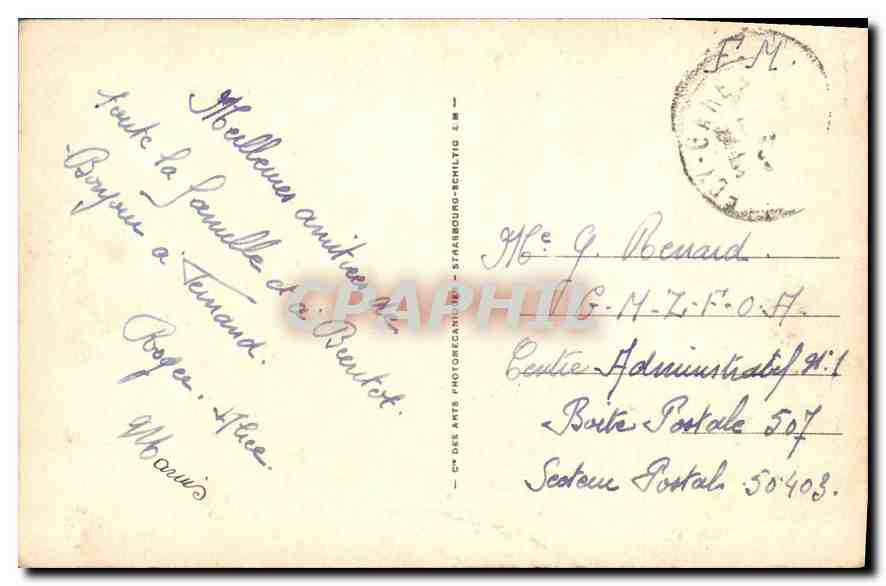 Meilleures amitiés de
toute la famille et à Bientot.
Bonjour à Fernand.
Roger. Alice
Marius
Cie DES ARTS PHOTOMECANIQUES – STRASBOURG-SCHILTIG
F.M.
G. Renard
V-G-M-Z-F-O-A
Centre Administratif N°1
Boite Postale 507
Secteur Postal 50.403.
CPAPHIL